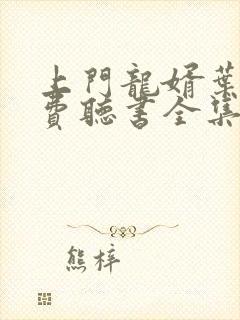 上門龍婿葉
費聽書全集
熊梓